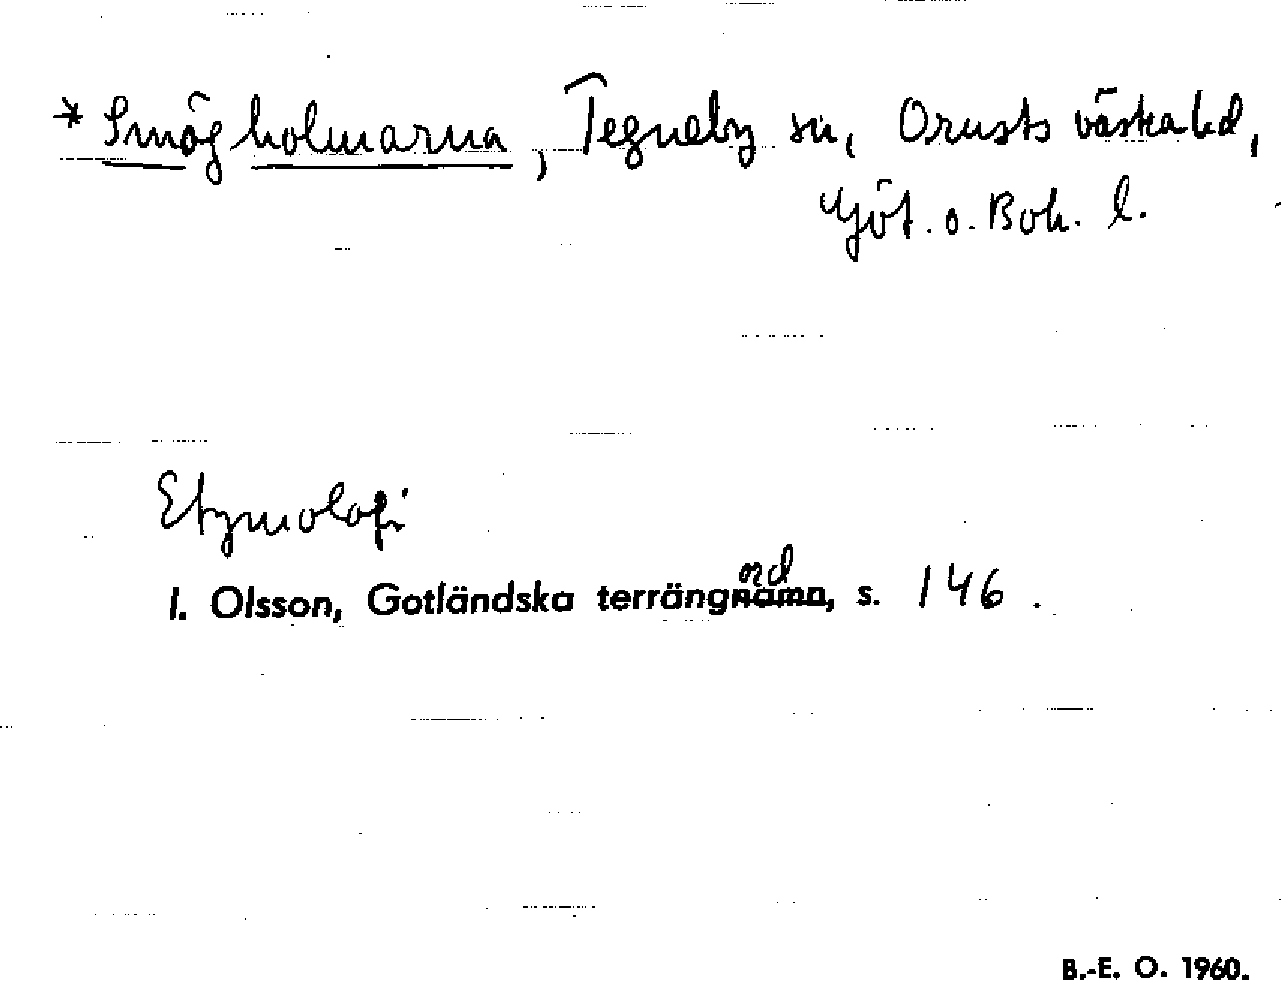 *Smögholmarna, Tegneby sn, Orusts västra hd,
Göt. o. Boh. l.
Etymologi
I. Olsson, Gotländska terrängord, s. 146.
B.-E. O. 1960.